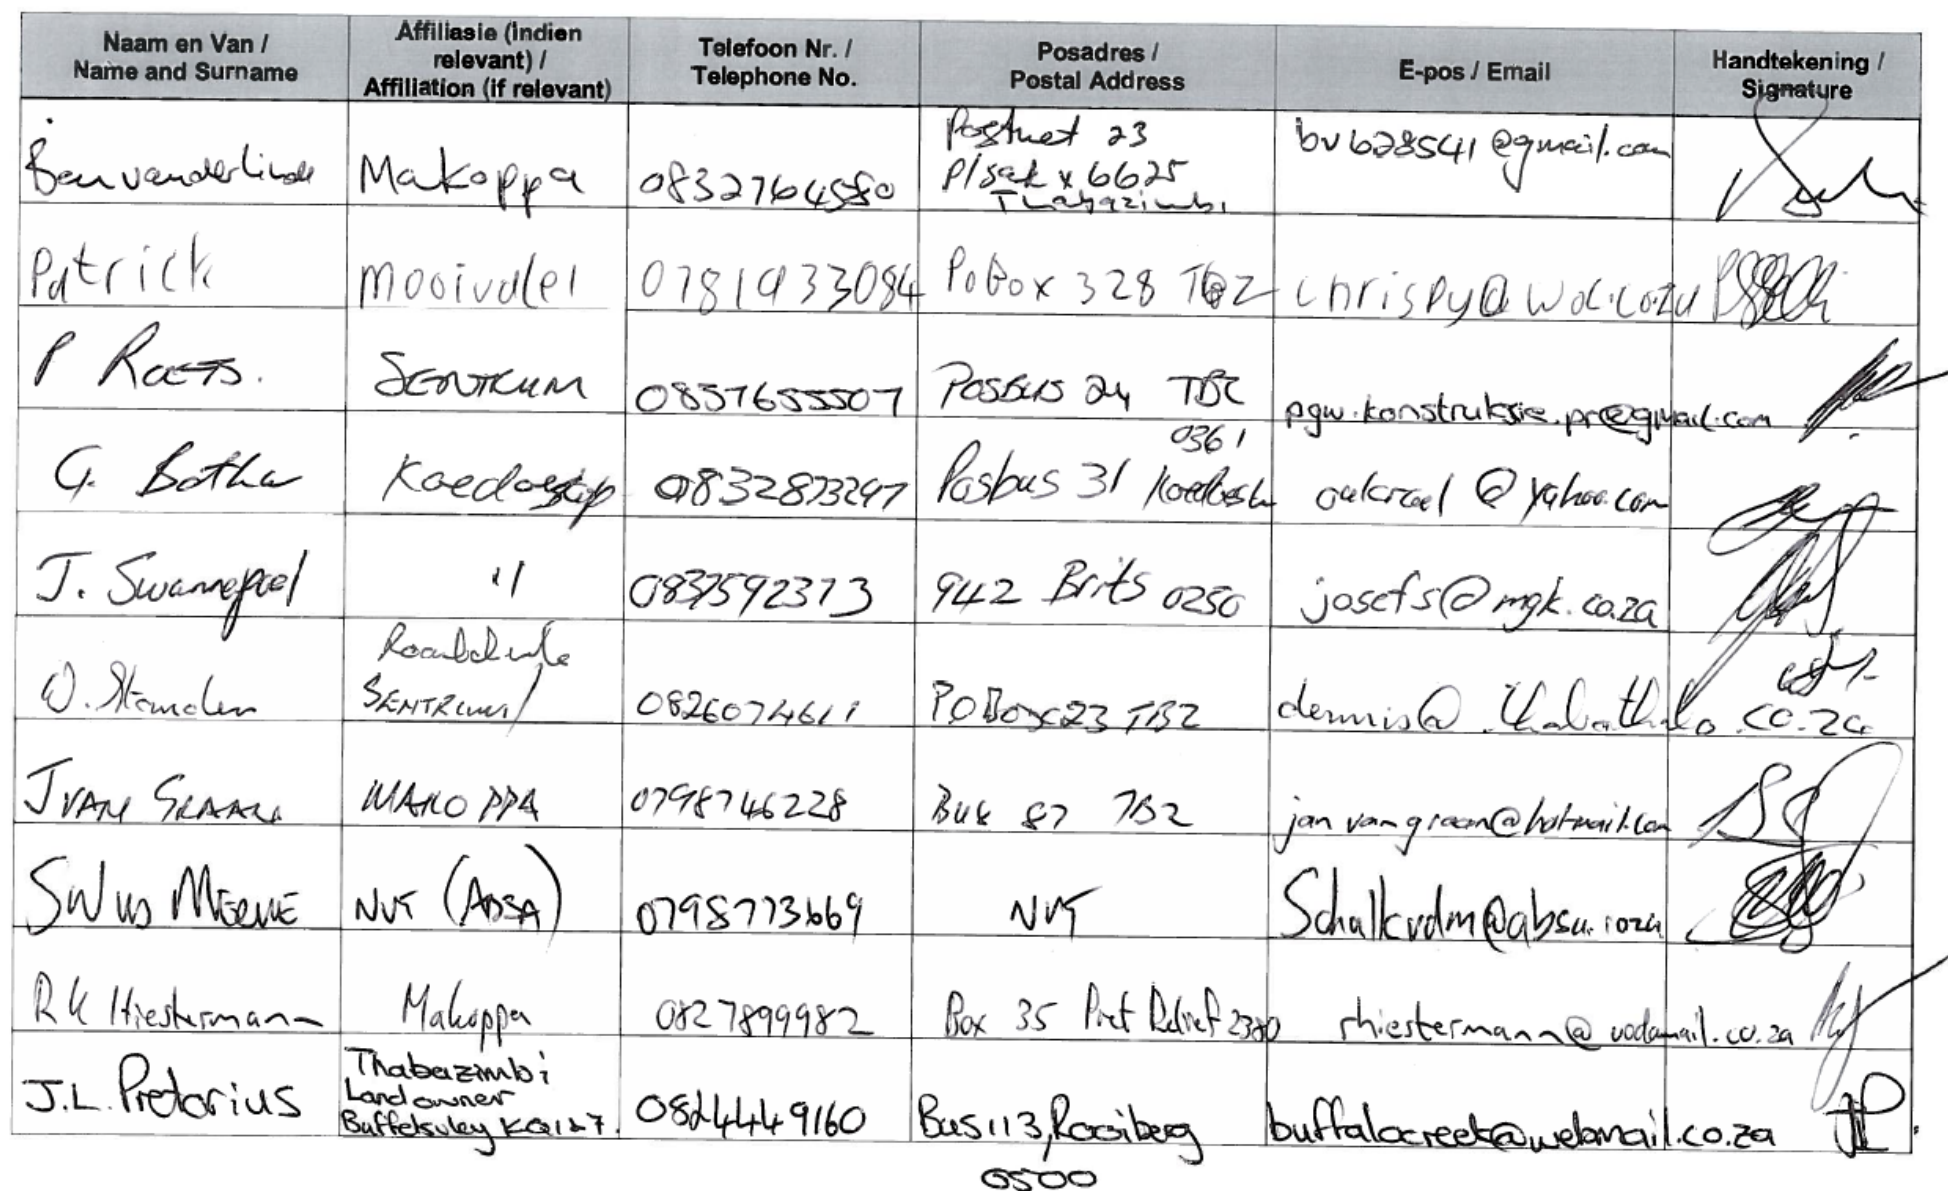 Naam en Van / Name and Surname
Affiliasie (Indien relevant) / Affiliation (if relevant)
Telefoon Nr. / Telephone No.
Posadres / Postal Address
E-pos / Email
Handtekening / Signature
Ben vanderlinde Makoppa 0832764580 Postnet 23 P/sak x 6625 Thabazimbi bvb28541@gmail.com
Patrick Mooivalei 0781933084 PoBox 328 TBZ chrispy@wol.co.za
P Roets. SENTRUM 0837655507 POSBUS 24 TBZ pgw.konstruksie.pr@gmail.com
G. Botha Koedoeskop 0832873297 Posbus 31 0361 oukraal@yahoo.com
J. Swanepoel " 0837592373 942 Brits 0250 josefs@mgk.co.za
SENTRUM/ 0826074611 PO Box 23 TBZ dennis@ .co.za
J VAN GRAAN MAKOPPA 0798746228 Bus 87 TBZ janvangraan@hotmail.com
SW vd MERWE NVT (ABSA) 0798773669 NVT Schalkvdm@absa.coza
RK Hiestermann Makoppa 0827899982 Box 35 Piet Retief 2380 rhiestermann@vodamail.co.za
J.L. Pretorius Thabazimbi Landowner Buffelsvley KQ127. 0824449160 Bus 113, Rooiberg 0500 buffalocreek@webmail.co.za JP